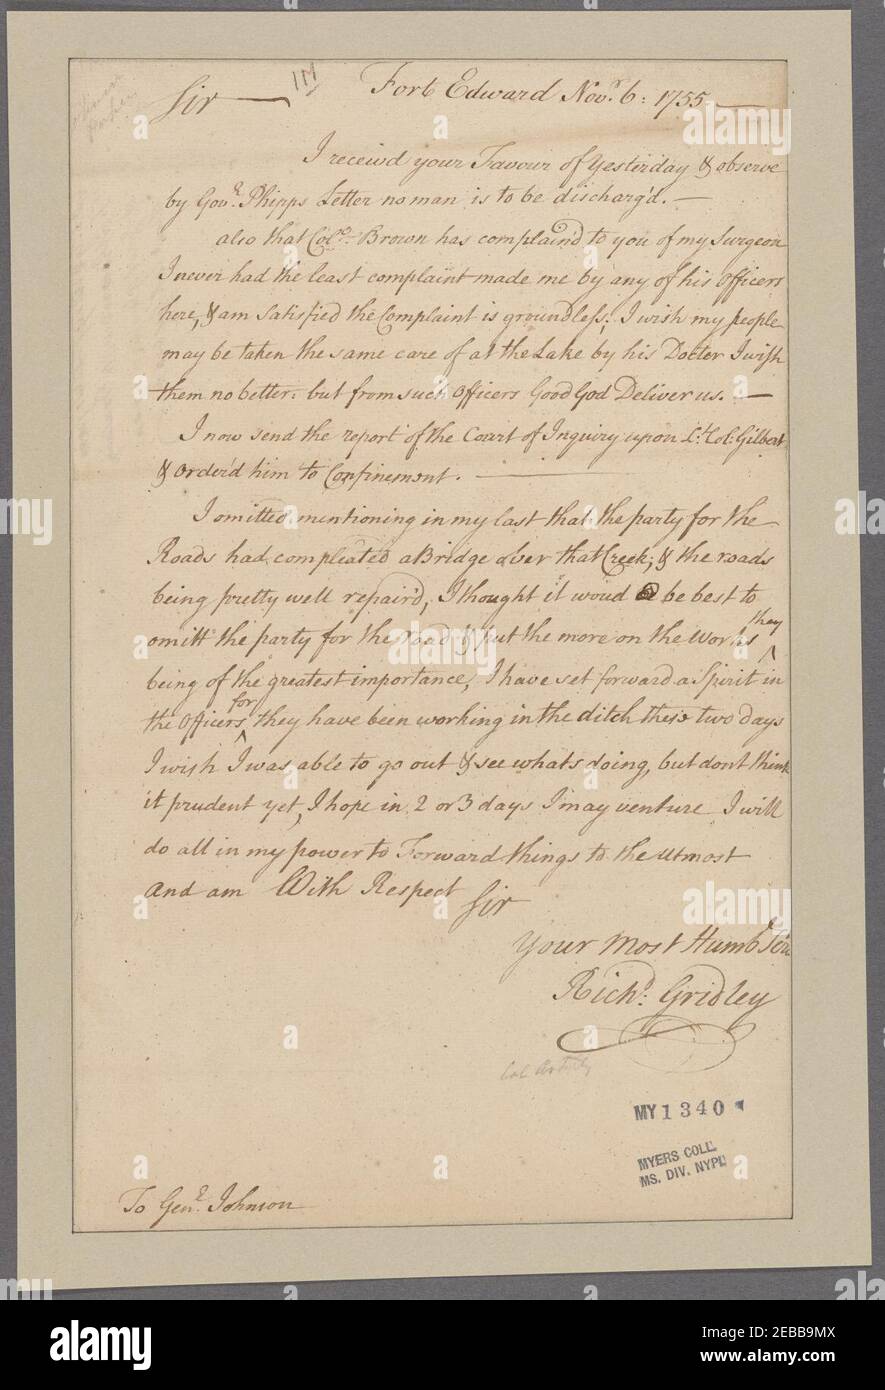 Sir 111 Fort Edward Nov.r 6: 1755
I receivd your Favour of Yesterday & observe
by Gov.r Phipps Letter no man is to be discharg'd.—
also that Col.o Brown has complain'd to you of my Surgeon
I never had the least complaint made me by any of his Officers
here, & am Satisfied the Complaint is groundless; I wish my people
may be taken the same care of at the Lake by his Docter I wish
them no better: but from such Officers Good God Deliver us.—
I now send the report of the Court of Inquiry upon L.t Col: Gilbert
& Order'd him to Confinement.
I omitted mentioning in my last that the party for the
Roads had compleated a Bridge over that Creek; & the roads
being pretty well repair'd, I thought it woud be best to
omitt the party for the road & put the more on the Works they
being of the greatest importance, I have set forward a Spirit in
the Officers for they have been working in the ditch these two days
I wish I was able to go out & see whats doing, but dont think
it prudent yet, I hope in 2 or 3 days I may venture I will
do all in my power to Forward things to the utmost
And am With Respect Sir
Your Most Humb.e Ser
Rich.d Gridley
Col Artilly
MY 1340
MYERS COLL.
MS. DIV. NYPL
To Gen.l Johnson
alamy
Image ID: 2EBB9MX
www.alamy.com